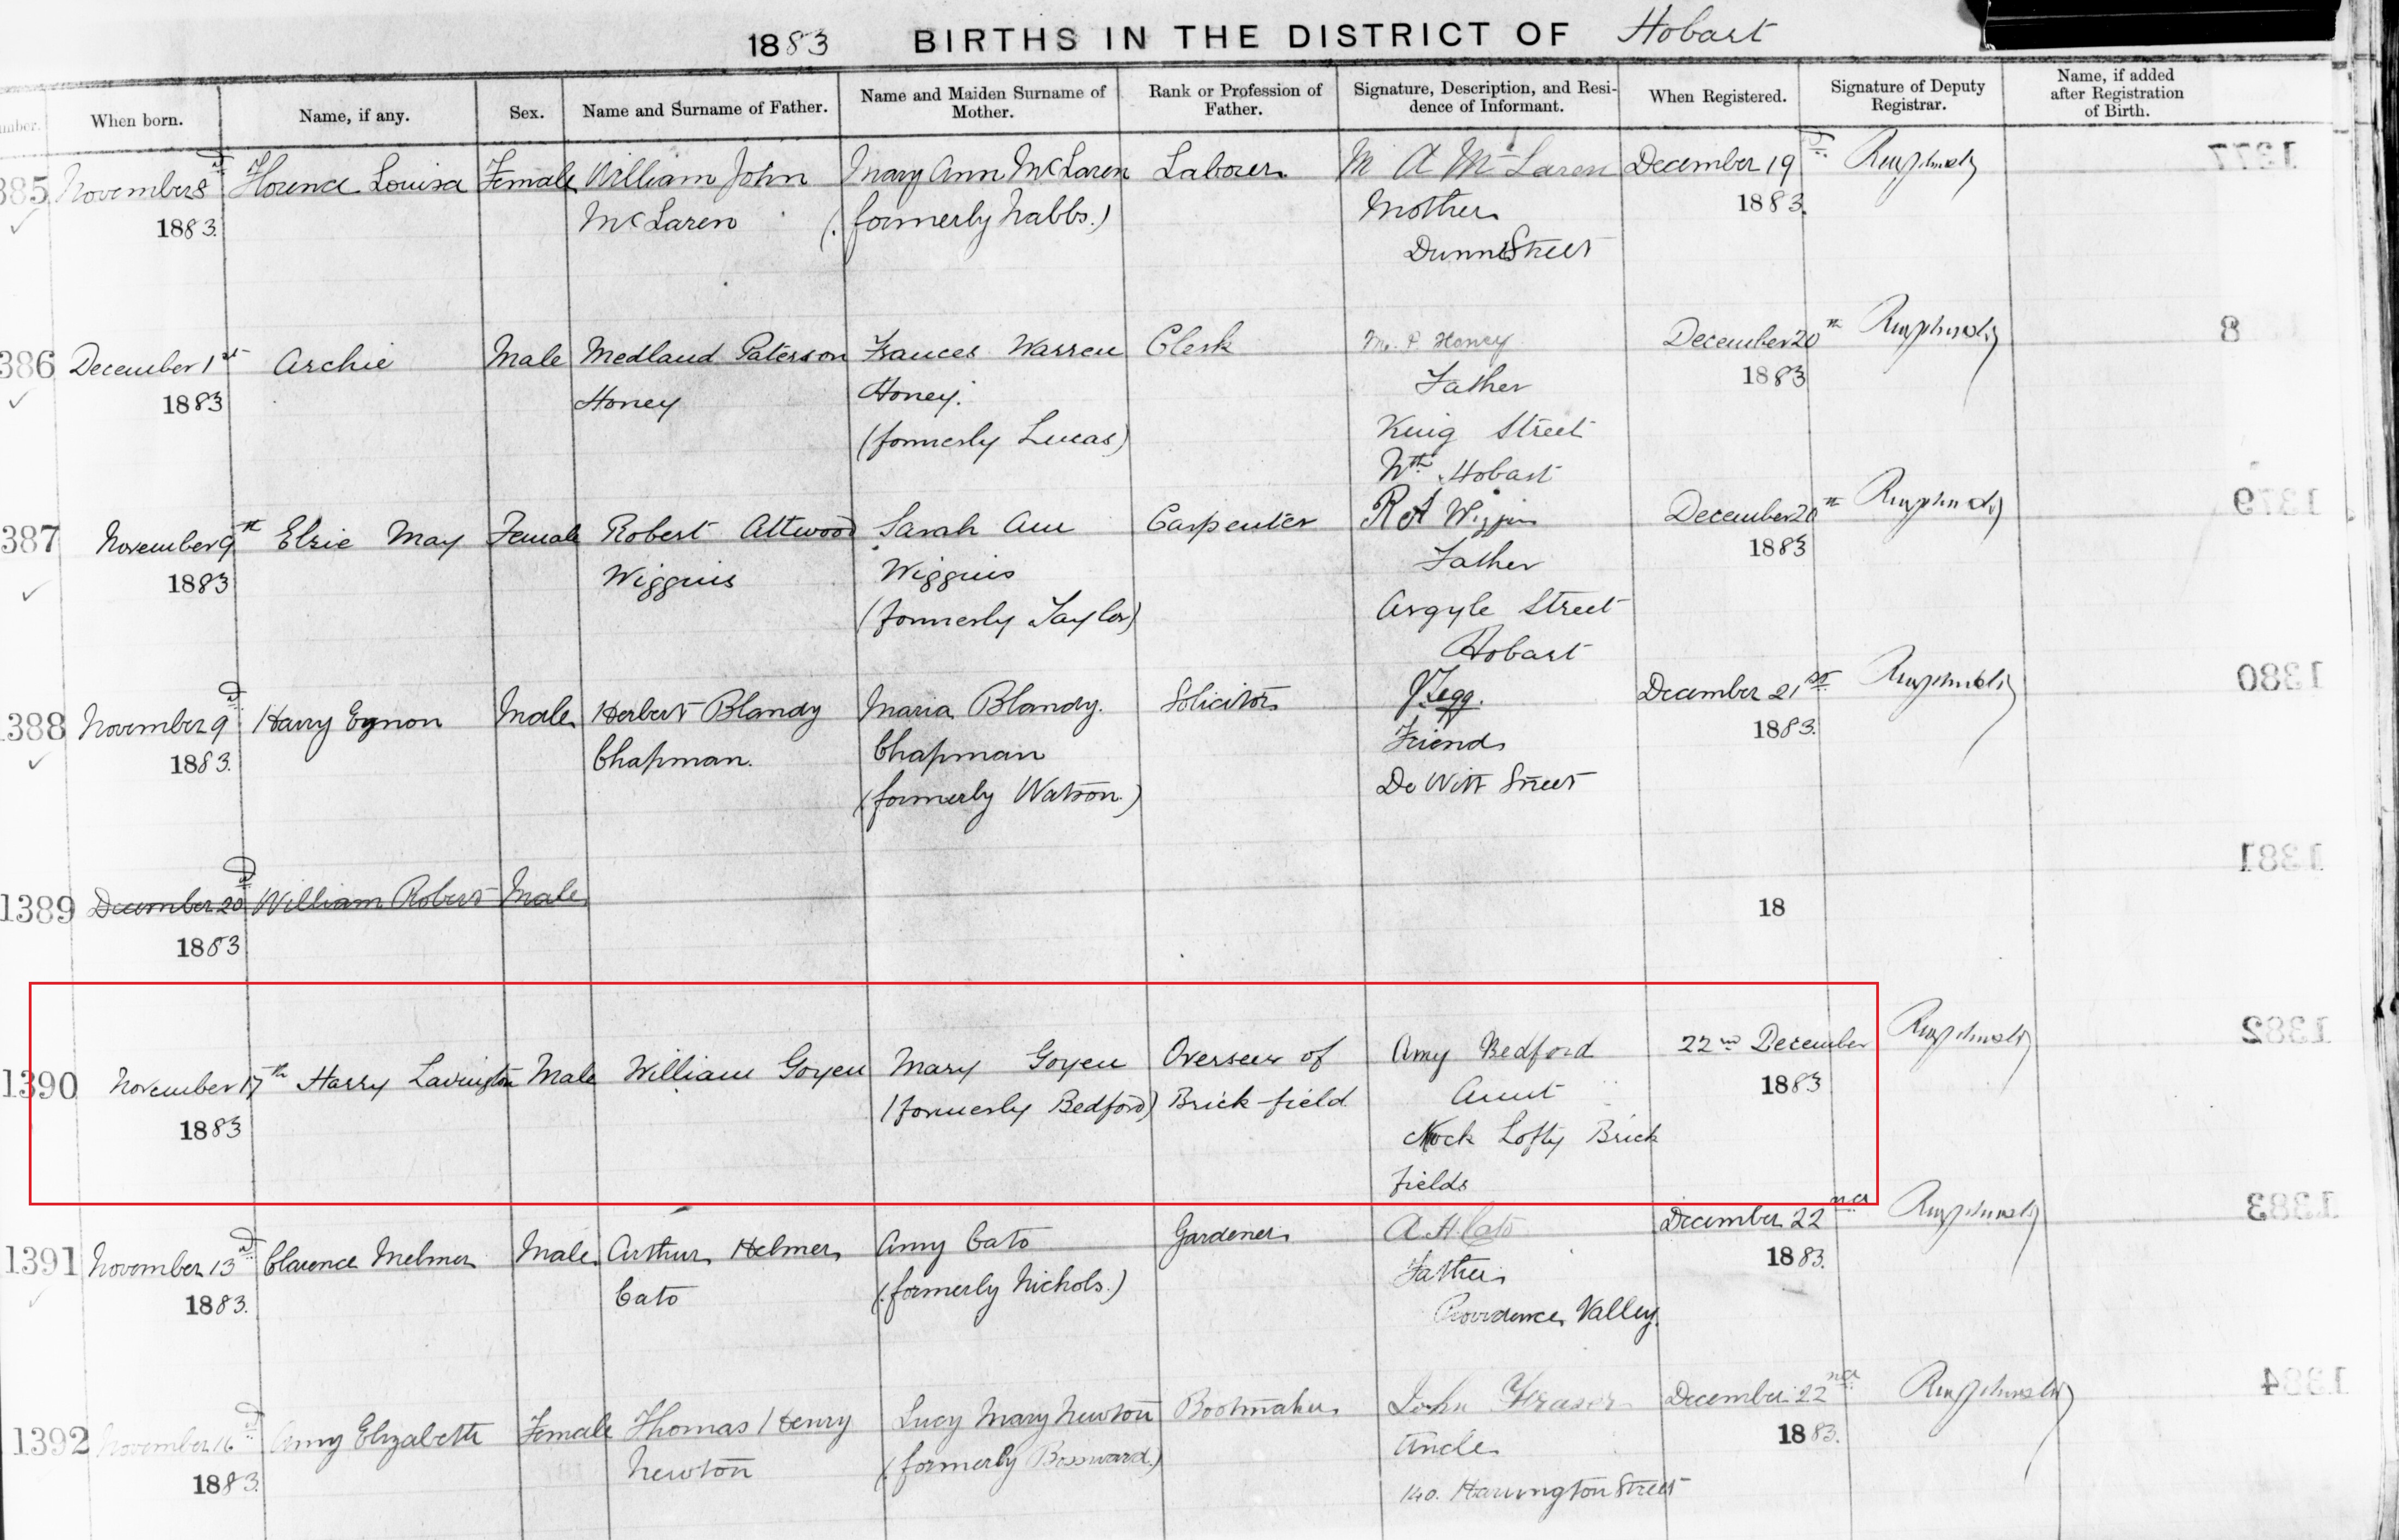 1883 BIRTHS IN THE DISTRICT OF Hobart
Number. When born. Name, if any. Sex. Name and Surname of Father. Name and Maiden Surname of Mother. Rank or Profession of Father. Signature, Description, and Residence of Informant. When Registered. Signature of Deputy Registrar. Name, if added after Registration of Birth.
385 November 8 Florence Louisa Female William John Mary Ann McLaren Laborer M A McLaren December 19
1883. McLaren (formerly Nabbs.) Mother 1883.
Dunne Street
386 December 1st Archie Male Medland Paterson Frances Warren Clerk M. P. Honey December 20th
1883 Honey Honey. Father 1883
(formerly Lucas) King Street
Nth. Hobart
387 November 9th Elsie May Female Robert Attwood Sarah Ann Carpenter R A Wiggins December 20th
1883 Wiggins Wiggins Father 1883
(formerly Taylor) Argyle Street
Hobart
388 November 9 Harry Eynon Male Herbert Blandy Maria Blandy. Solicitor J Tegg. December 21st
1883. Chapman. Chapman Friend 1883.
(formerly Watson.) De Witt Street
1389 December 20 William Robert Male 18
1883
1390 November 17th Harry Lavington Male William Goyen Mary Goyen Overseer of Amy Bedford 22nd December
1883 (formerly Bedford) Brick-field Aunt 1883
Knock Lofty Brick
fields
1391 November 13 Clarence Melmer Male Arthur Helmer Amy Cato Gardener A. H. Cato December 22nd
1883. Cato (formerly Nichols.) Father 1883.
Providence Valley.
1392 November 16 Amy Elizabeth Female Thomas Henry Lucy Mary Newton Bootmaker John Fraser December 22nd
1883. Newton (formerly Bossward.) Uncle 1883.
140. Harrington Street
1377
8
1379
1380
1381
1382
1383
1384